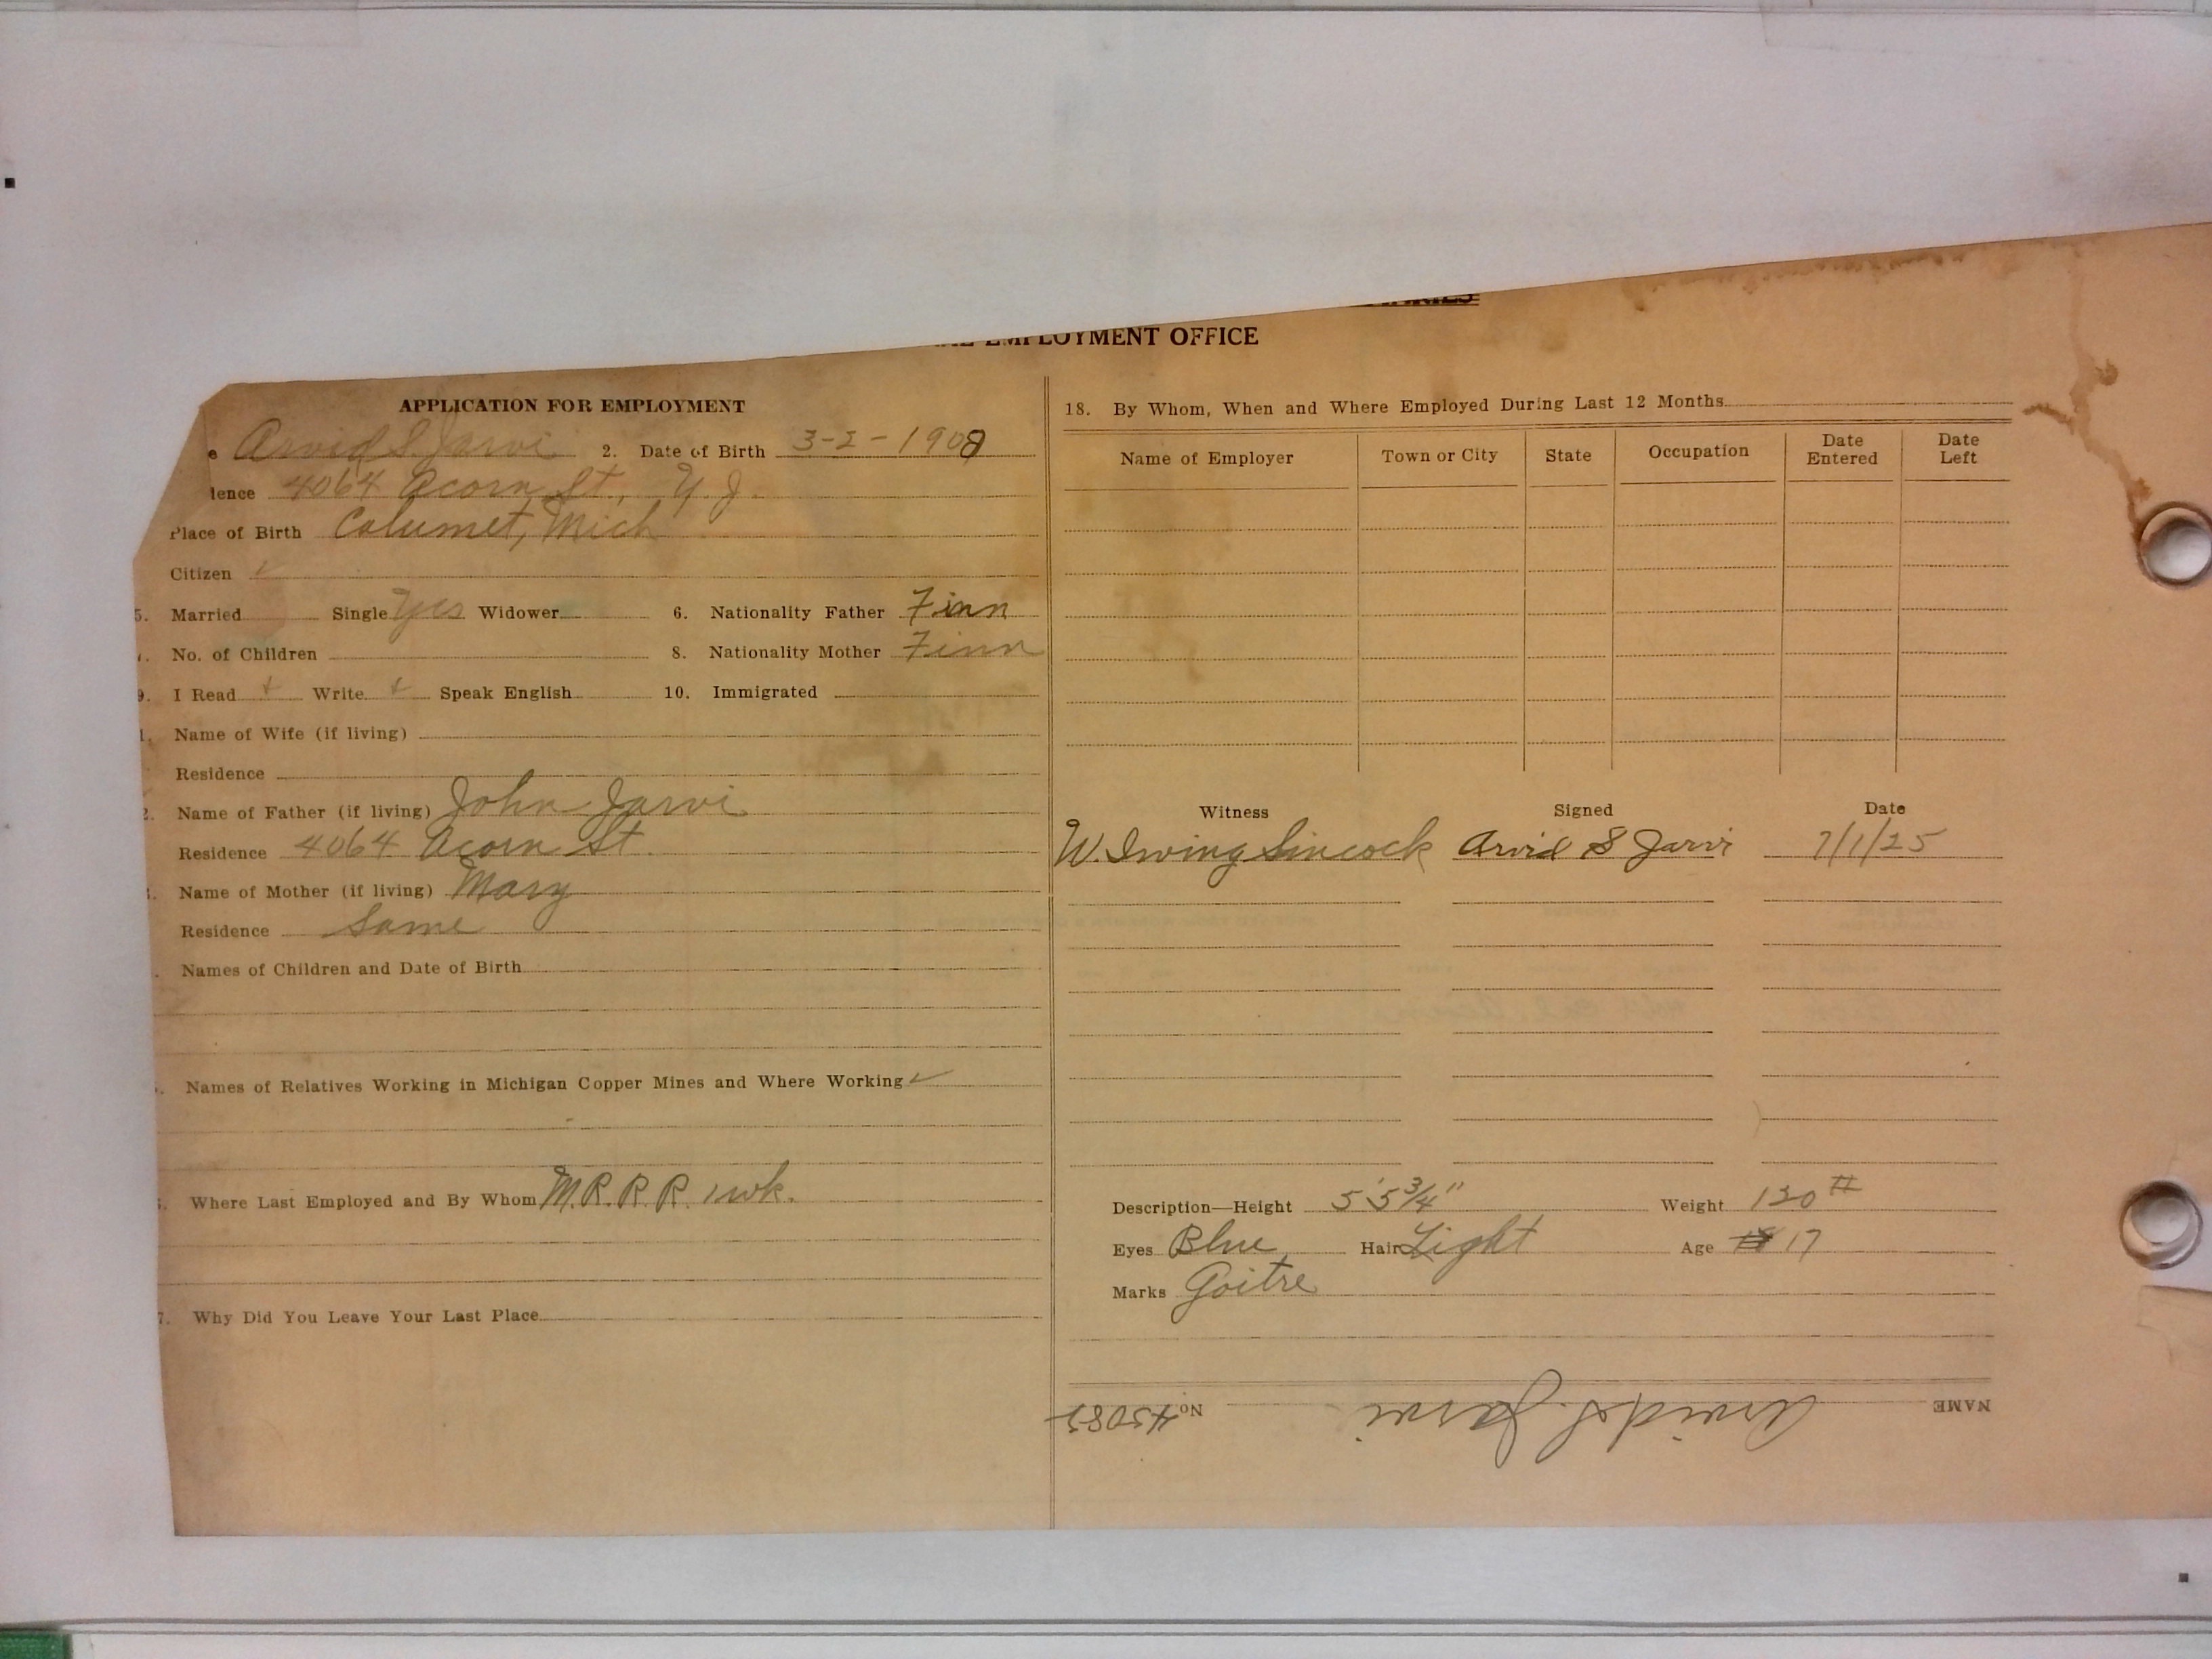 EMPLOYMENT OFFICE
APPLICATION FOR EMPLOYMENT
e Arvid S. Jarvi 2. Date of Birth 3-2-1908
dence 4064 Acorn St., Y. J.
Place of Birth Calumet, Mich
Citizen ✓
5. Married Single Yes Widower 6. Nationality Father Finn
No. of Children 8. Nationality Mother Finn
9. I Read + Write + Speak English 10. Immigrated
1. Name of Wife (if living)
Residence
2. Name of Father (if living) John Jarvi
Residence 4064 Acorn St.
Name of Mother (if living) Mary
Residence Same
Names of Children and Date of Birth
Names of Relatives Working in Michigan Copper Mines and Where Working ✓
Where Last Employed and By Whom M.R.R.R. 1 wk.
7. Why Did You Leave Your Last Place
18. By Whom, When and Where Employed During Last 12 Months
Name of Employer Town or City State Occupation Date Entered Date Left
Witness Signed Date
W. Irving Sincock Arvid S Jarvi 7/1/25
Description—Height 5'5 3/4" Weight 130 #
Eyes Blue Hair Light Age 17
Marks Goitre
NAME Arvid S. Jarvi No. 45083